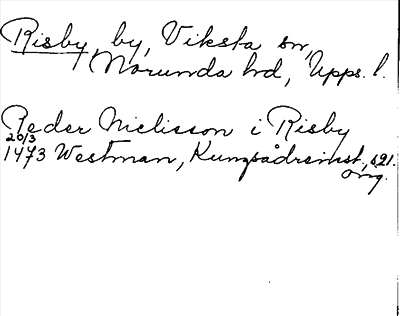 Risby, by, Viksta sn,
Norunda hd, Upps. l.
Peder Nielisson i Risby
20/3
1473 Westman, Kungsådreinst., s. 91.
orig.